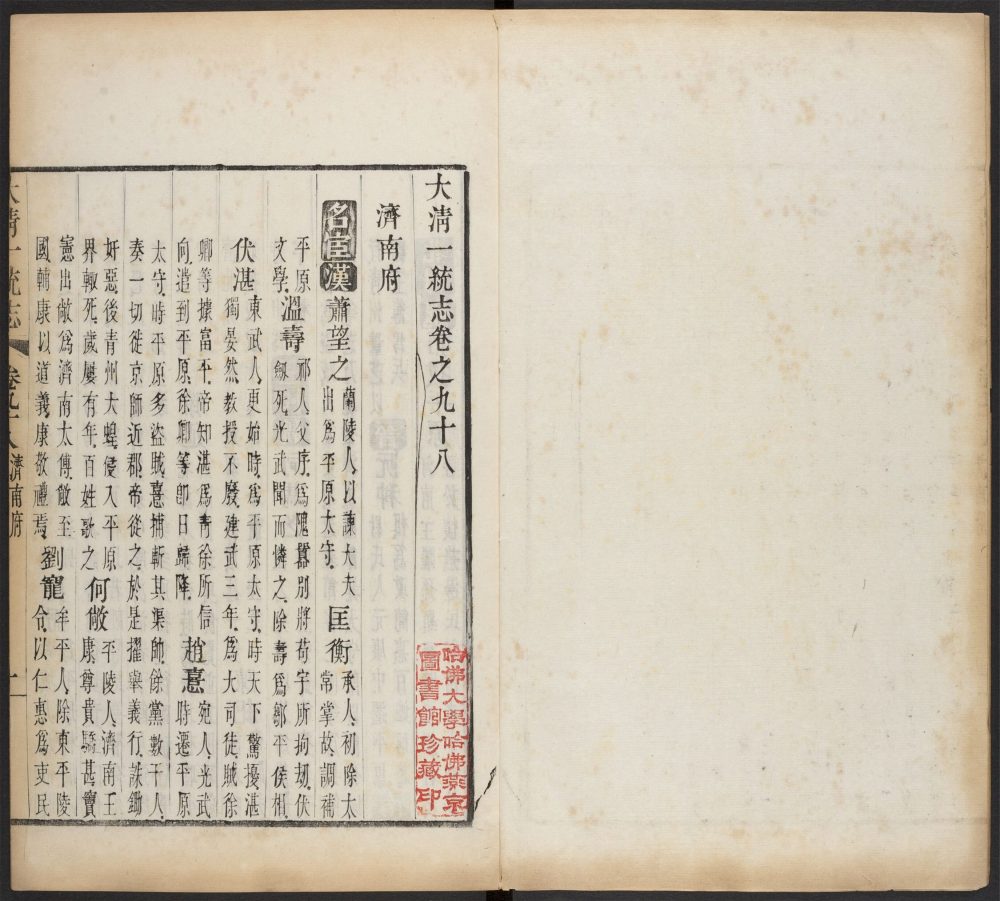 大清一統志卷之九十八
濟南府
名臣漢蕭望之蘭陵人以諫大夫出爲平原太守匡衡承人初除太常掌故調補
平原文學溫壽祁人父序爲隗囂别將苟宇所拘刼伏劒死光武聞而憐之除壽爲鄒平侯相
伏湛東武人更始時爲平原太守時天下驚擾湛獨晏然教授不廢建武三年爲大司徒賊徐
卿等據富平帝知湛爲青徐所信向遣到平原徐卿等卽日歸降趙憙宛人光武時遷平原
太守時平原多盜賊憙捕斬其渠帥餘黨數千人奏一切徙京師近郡帝從之於是擢舉義行誅鋤
奸惡後青州大蝗侵入平原界輙死歲屢有年百姓歌之何敞平陵人濟南王康尊貴驕甚竇
憲出敞爲濟南太傅敞至國輔康以道義康敬禮焉劉寵牟平人除東平陵令以仁惠爲吏民
大清一統志 卷九十八 濟南府 一
哈佛大學哈佛燕京
圖書館珍藏印